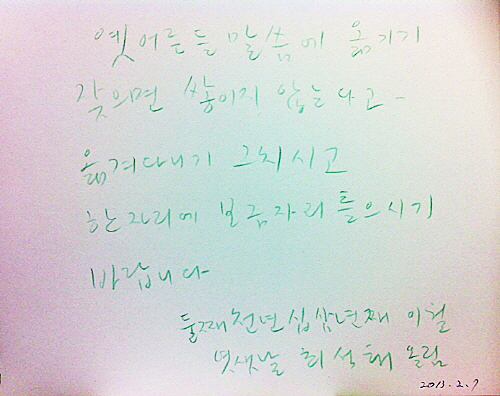 옛어른들 말씀에 옮기기
잦으면 쌓이지 않는다고-
옮겨다니기 그치시고
한자리에 보금자리 틀으시기
바랍니다
둘째천년십삼년째 이월
엿샛날 최석태 올림
2013.2.7